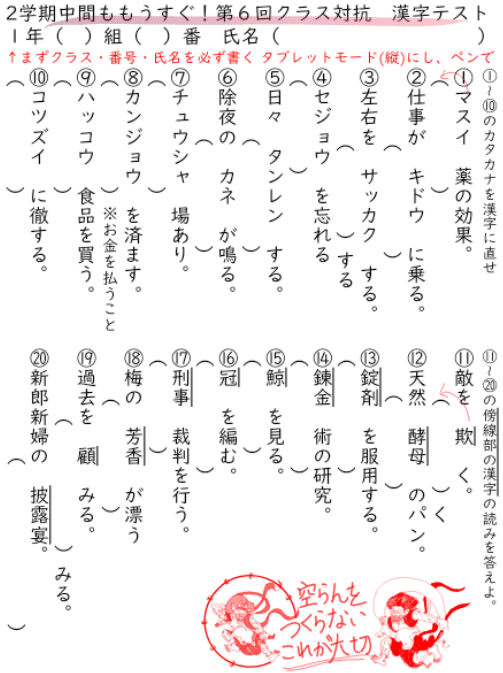 2学期中間ももうすぐ！第６回クラス対抗　漢字テスト
１年（　）組（　）番　氏名（　　　　　　）
↑まずクラス・番号・氏名を必ず書く タブレットモード(縦)にし、ペンで
①～⑩のカタカナを漢字に直せ
①マスイ　薬の効果。（　）
②仕事が　キドウ　に乗る。（　）
③左右を　サッカク　する。（　）する
④セジョウ　を忘れる（　）
⑤日々　タンレン　する。（　）
⑥除夜の　カネ　が鳴る。（　）
⑦チュウシャ　場あり。（　）
⑧カンジョウ　を済ます。（　）※お金を払うこと
⑨ハッコウ　食品を買う。（　）
⑩コツズイ　に徹する。（　）
⑪～⑳の傍線部の漢字の読みを答えよ。
⑪敵を　欺　く。（　）く
⑫天然　酵母　のパン。（　）
⑬錠剤　を服用する。（　）
⑭錬金　術の研究。（　）
⑮鯨　を見る。（　）
⑯冠　を編む。（　）
⑰刑事　裁判を行う。（　）
⑱梅の　芳香　が漂う（　）
⑲過去を　顧　みる。（　）みる。
⑳新郎新婦の　披露宴。（　）
空らんを
つくらない
これが大切